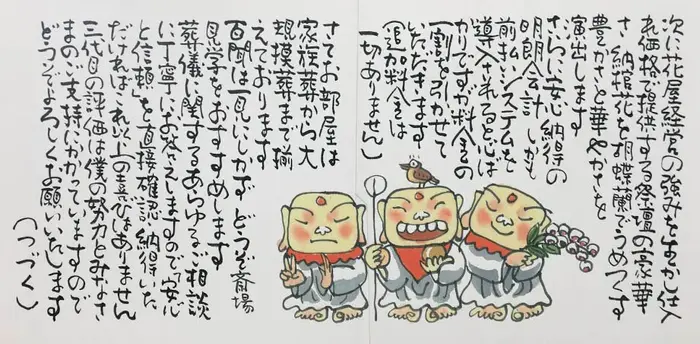 次に花屋経営の強みを生かし仕入
れ価格で提供する祭壇の豪華
さ 納棺花を胡蝶蘭でうめつくす
豊かさと華やかさを
演出します
さらに安心納得の
明朗会計 しかも
前払いシステムを
導入されると心ば
かりですが料金の
一割を引かせて
いただきます
(追加料金は
一切ありません)
さてお部屋は
家族葬から大
規模葬まで揃
えております
百聞は一見にしかず どうぞ斎場
見学をおすすめします
葬儀に関するあらゆるご相談
に丁寧にお答えしますので「安心
と信頼」を直接確認 納得いた
だければこれ以上の喜びはありません
三代目の評価は僕の努力とみなさ
まのご支持にかかっていますので
どうぞよろしくお願いいたします
(つづく)